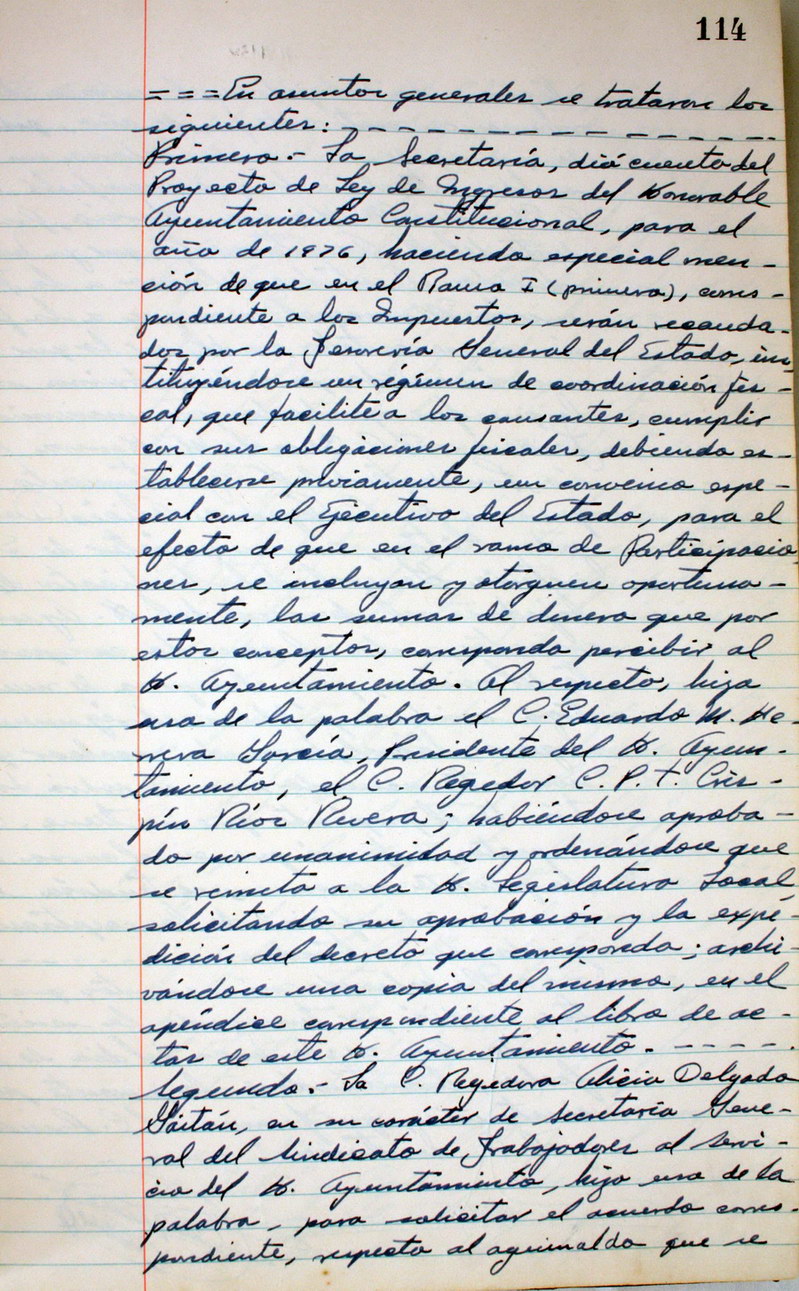 114
= = = En asuntos generales se trataron los
siguientes: - - - - - - - - - - - - - -
Primero.- La Secretaría, dió cuenta del
Proyecto de Ley de Ingresos del Honorable
Ayuntamiento Constitucional, para el
año de 1976, haciendo especial men-
ción de que en el Ramo I (primero), corres-
pondiente a los Impuestos, serán recauda-
dos por la Tesorería General del Estado, ins
tituyéndose un régimen de coordinación fis-
cal, que facilite a los causantes, cumplir
con sus obligaciones fiscales, debiendo es-
tablecerse previamente, un convenio espe-
cial con el Ejecutivo del Estado, para el
efecto de que en el ramo de Participacio
nes, se incluyan y otorguen oportuna-
mente, las sumas de dinero que por
estos conceptos, corresponda percibir al
H. Ayuntamiento. Al respecto, hizo
uso de la palabra el C. Eduardo M. He-
rrera García, Presidente del H. Ayun-
tamiento, el C. Regedor C. P. T. Cris-
pín Ríos Rivera; habiéndose aproba-
do por unanimidad y ordenándose que
se remita a la H. Legislatura Local,
solicitando su aprobación y la expe-
dición del decreto que corresponda; archi-
vándose una copia del mismo, en el
apéndice correspondiente al libro de ac-
tas de este H. Ayuntamiento. - - - - .
Segundo.- La C. Regedora Alicia Delgado
Gaitán, en su carácter de Secretaria Gene-
ral del Sindicato de Trabajadores al Servi-
cio del H. Ayuntamiento, hizo uso de la
palabra, para solicitar el acuerdo corres-
pondiente, respecto al aguinaldo que se